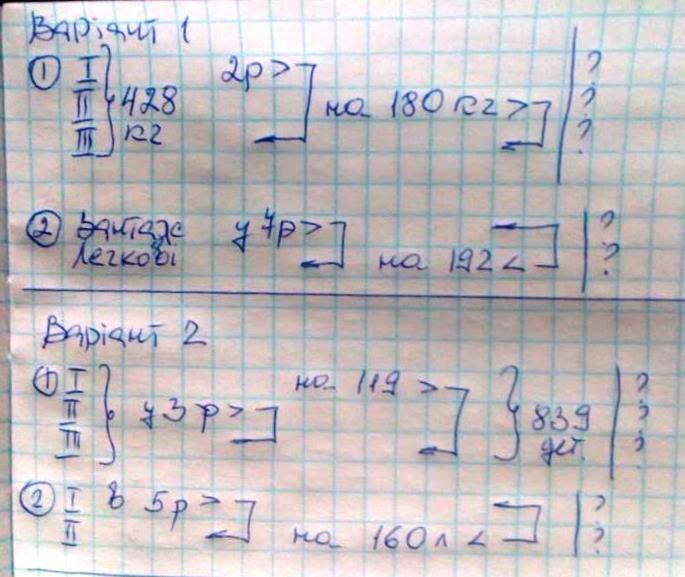 Варіант 1
① I 2р > ?
II 428 на 180 кг > ?
III кг ?
② Вантаж у 7р > ?
Легкові на 192 < ?
Варіант 2
① I на 119 > ?
II у 3 р > 839 ?
III дет. ?
② I в 5р > ?
II на 160 л < ?